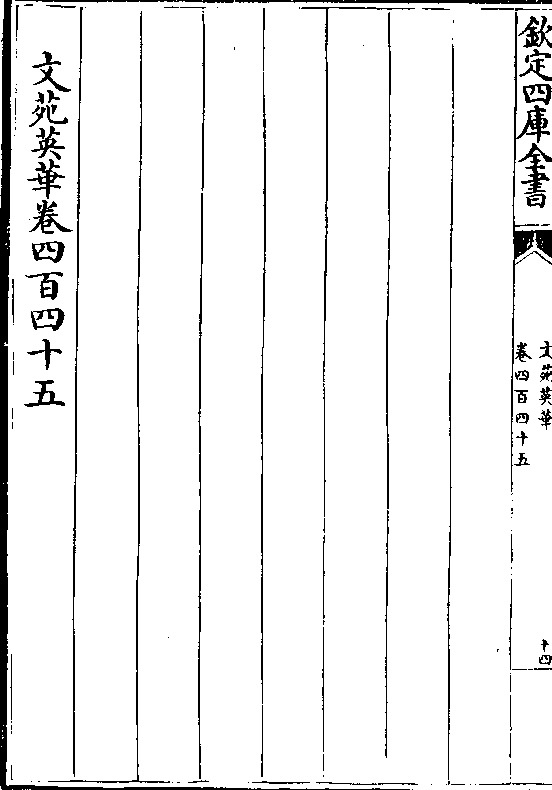 欽定四庫全書
文苑英華
卷四百四十五
十四
文苑英華卷四百四十五